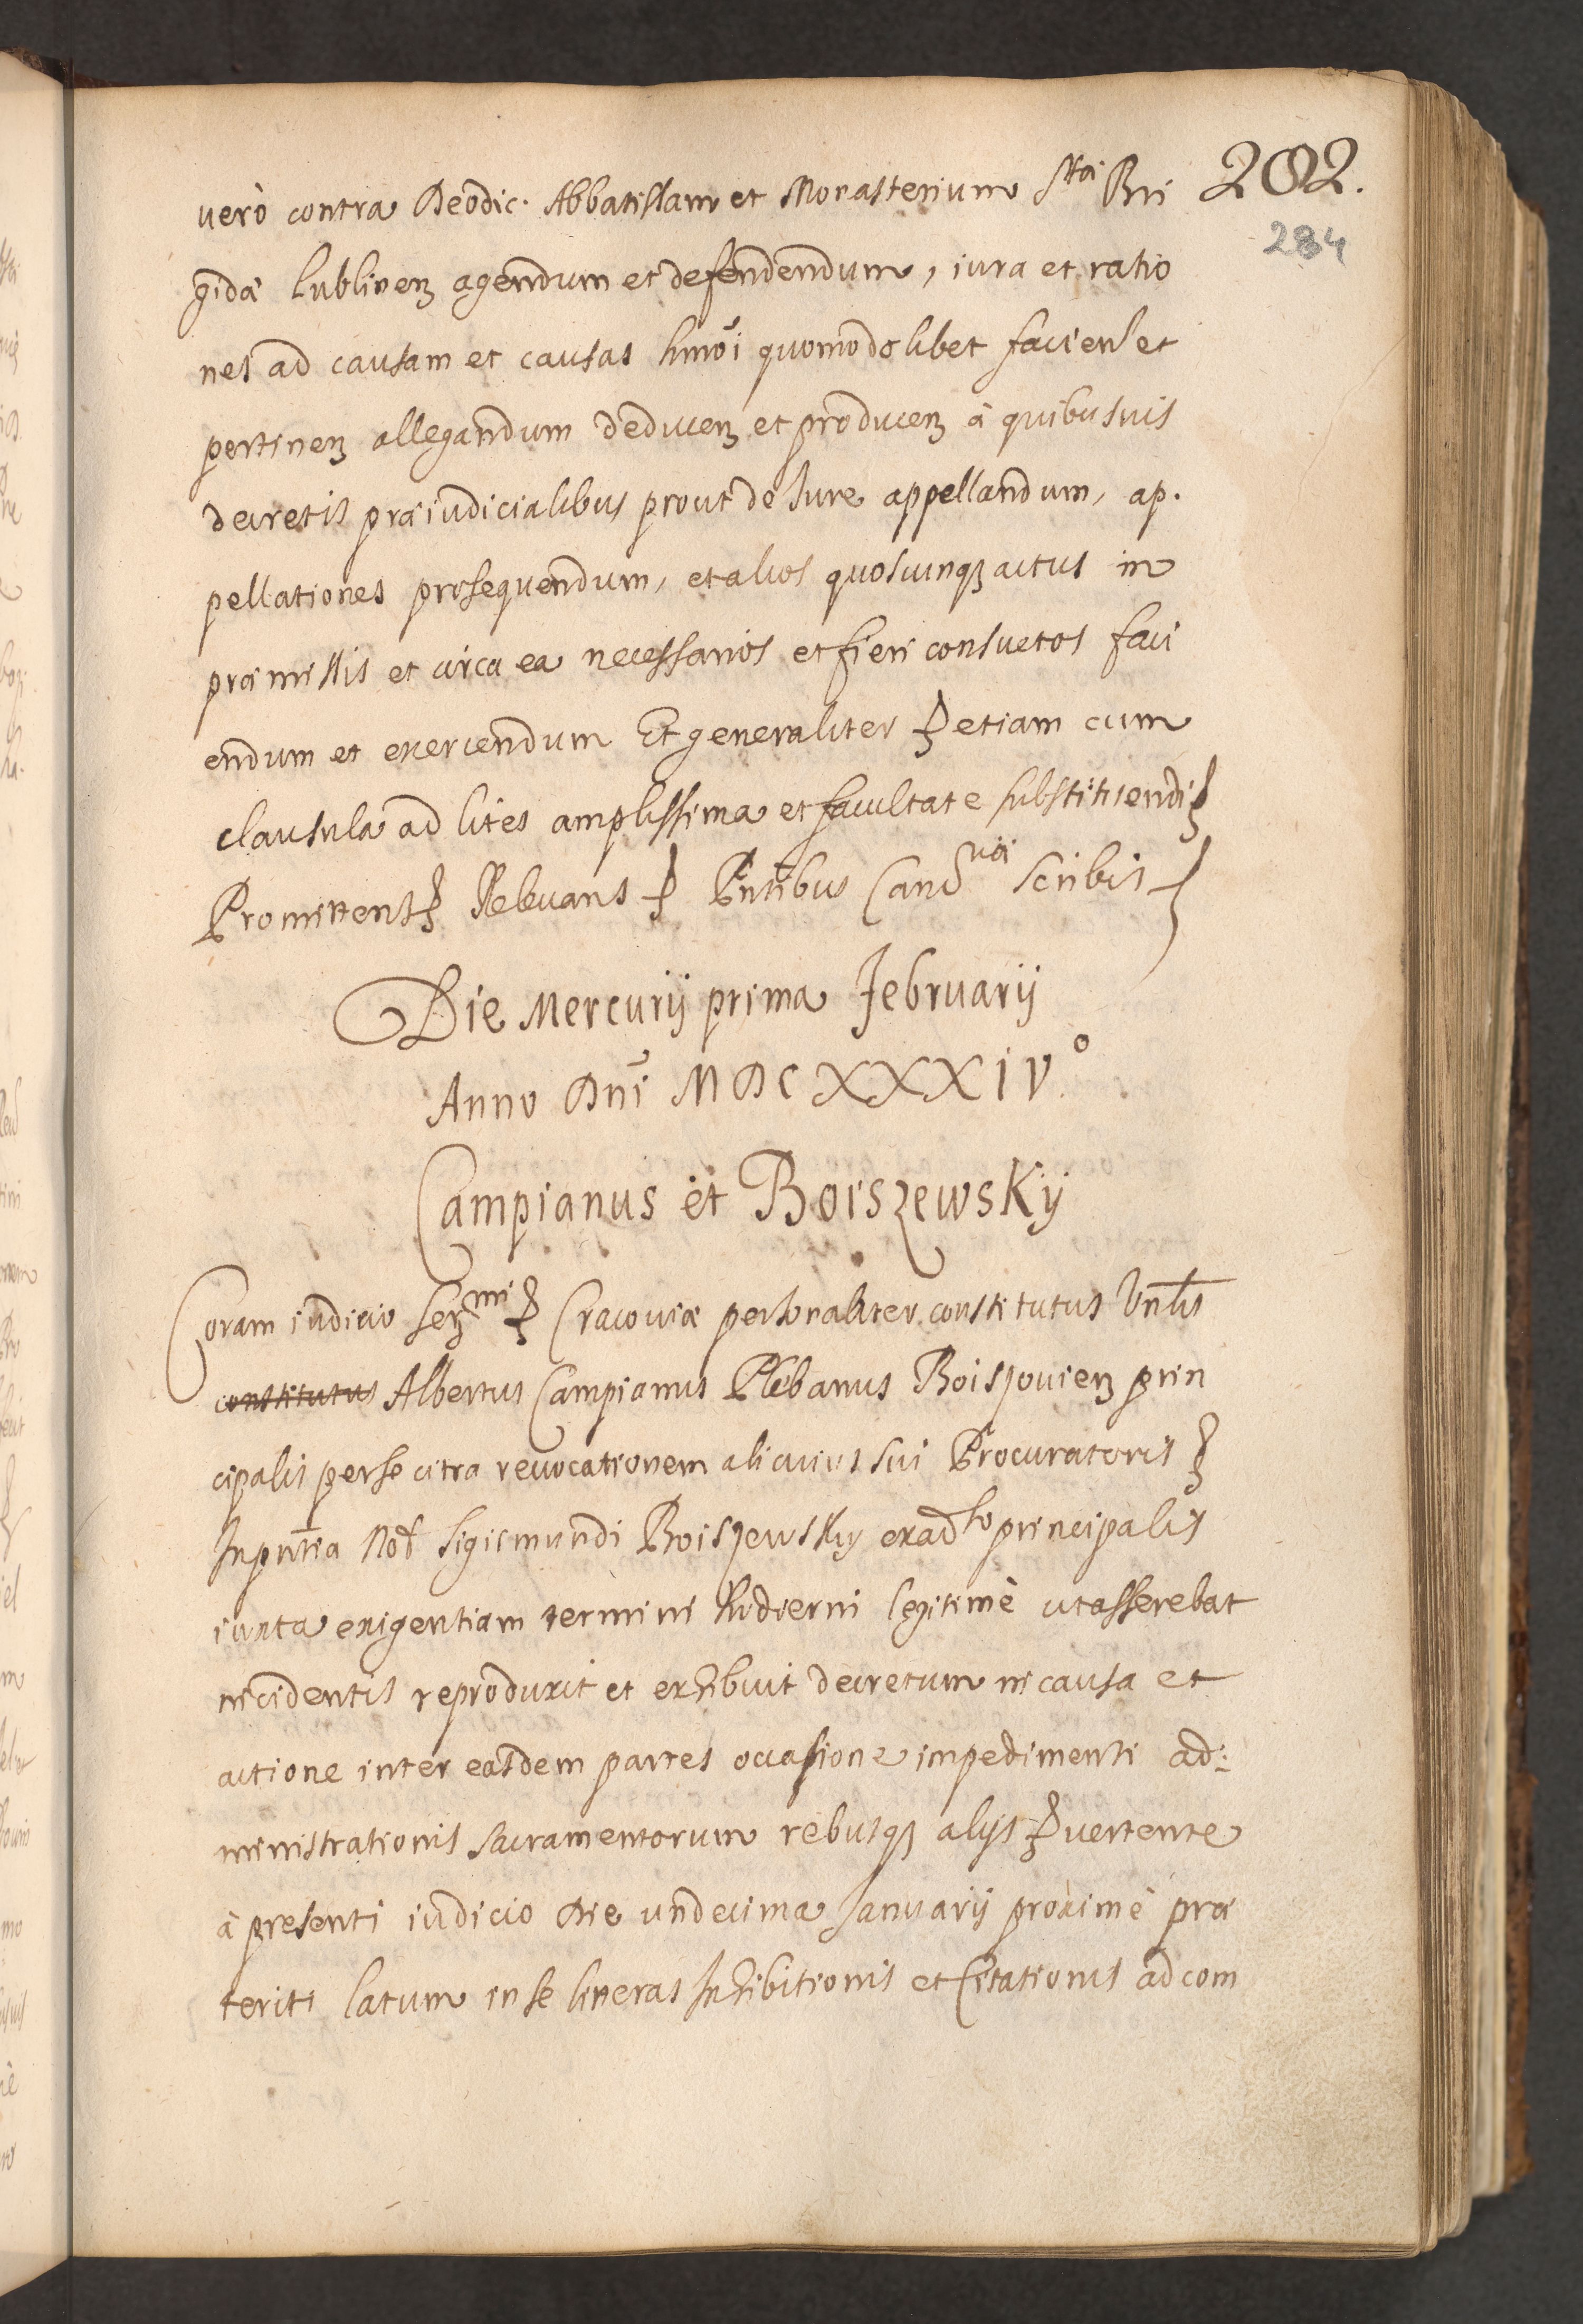 202.
284
uerò contra Deodic. Abbatissam et Monasterium Stæ Bri
gidæ Lublinenꝫ agendum et defendendum, iura et ratio
nes ad causam et causas hmōi quomodolibet facien et
pertinenꝫ allegandum deducenꝫ et producenꝫ à quibusuis
decretis præiudicialibus prout de Iure appellandum, ap.
pellationes prosequendum, et alios quoscunqꝫ actus in
præmissis et circa ea necessarios et fieri consuetos faci
endum et exercendum Et generaliter ꝑ etiam cum
clausula ad lites amplissima et facultate substituendi ꝑ
Promittens ꝑ Releuans ꝑ Pntibus Scribis
Die Mercurij prima Februarij
Anno Dnī MDCXXXIV.º
Campianus et Boiszewskij
Coram iudicio Serꝫmi ꝑ Cracouiæ personaliter constitutus Vnlis
constitutus Albertus Campianus Plebanus Boiszouienꝫ prin
cipalis per se citra reuocationem alicuius sui Procuratoris ꝑ
In pntia Nob Sigismundi Boiszewskij ex aduso principalis
iuxta exigentiam termini hodierni legitimè ut asserebat
incidentis reproduxit et exhibuit decretum in causa et
actione inter easdem partes occasione impedimenti ad:
ministrationis sacramentorum rebusqꝫ alijs ꝑ uertente
à presenti iudicio Die undecima Januarij proximè præ
teriti latum in se literas Inhibitionis et Citationis ad com